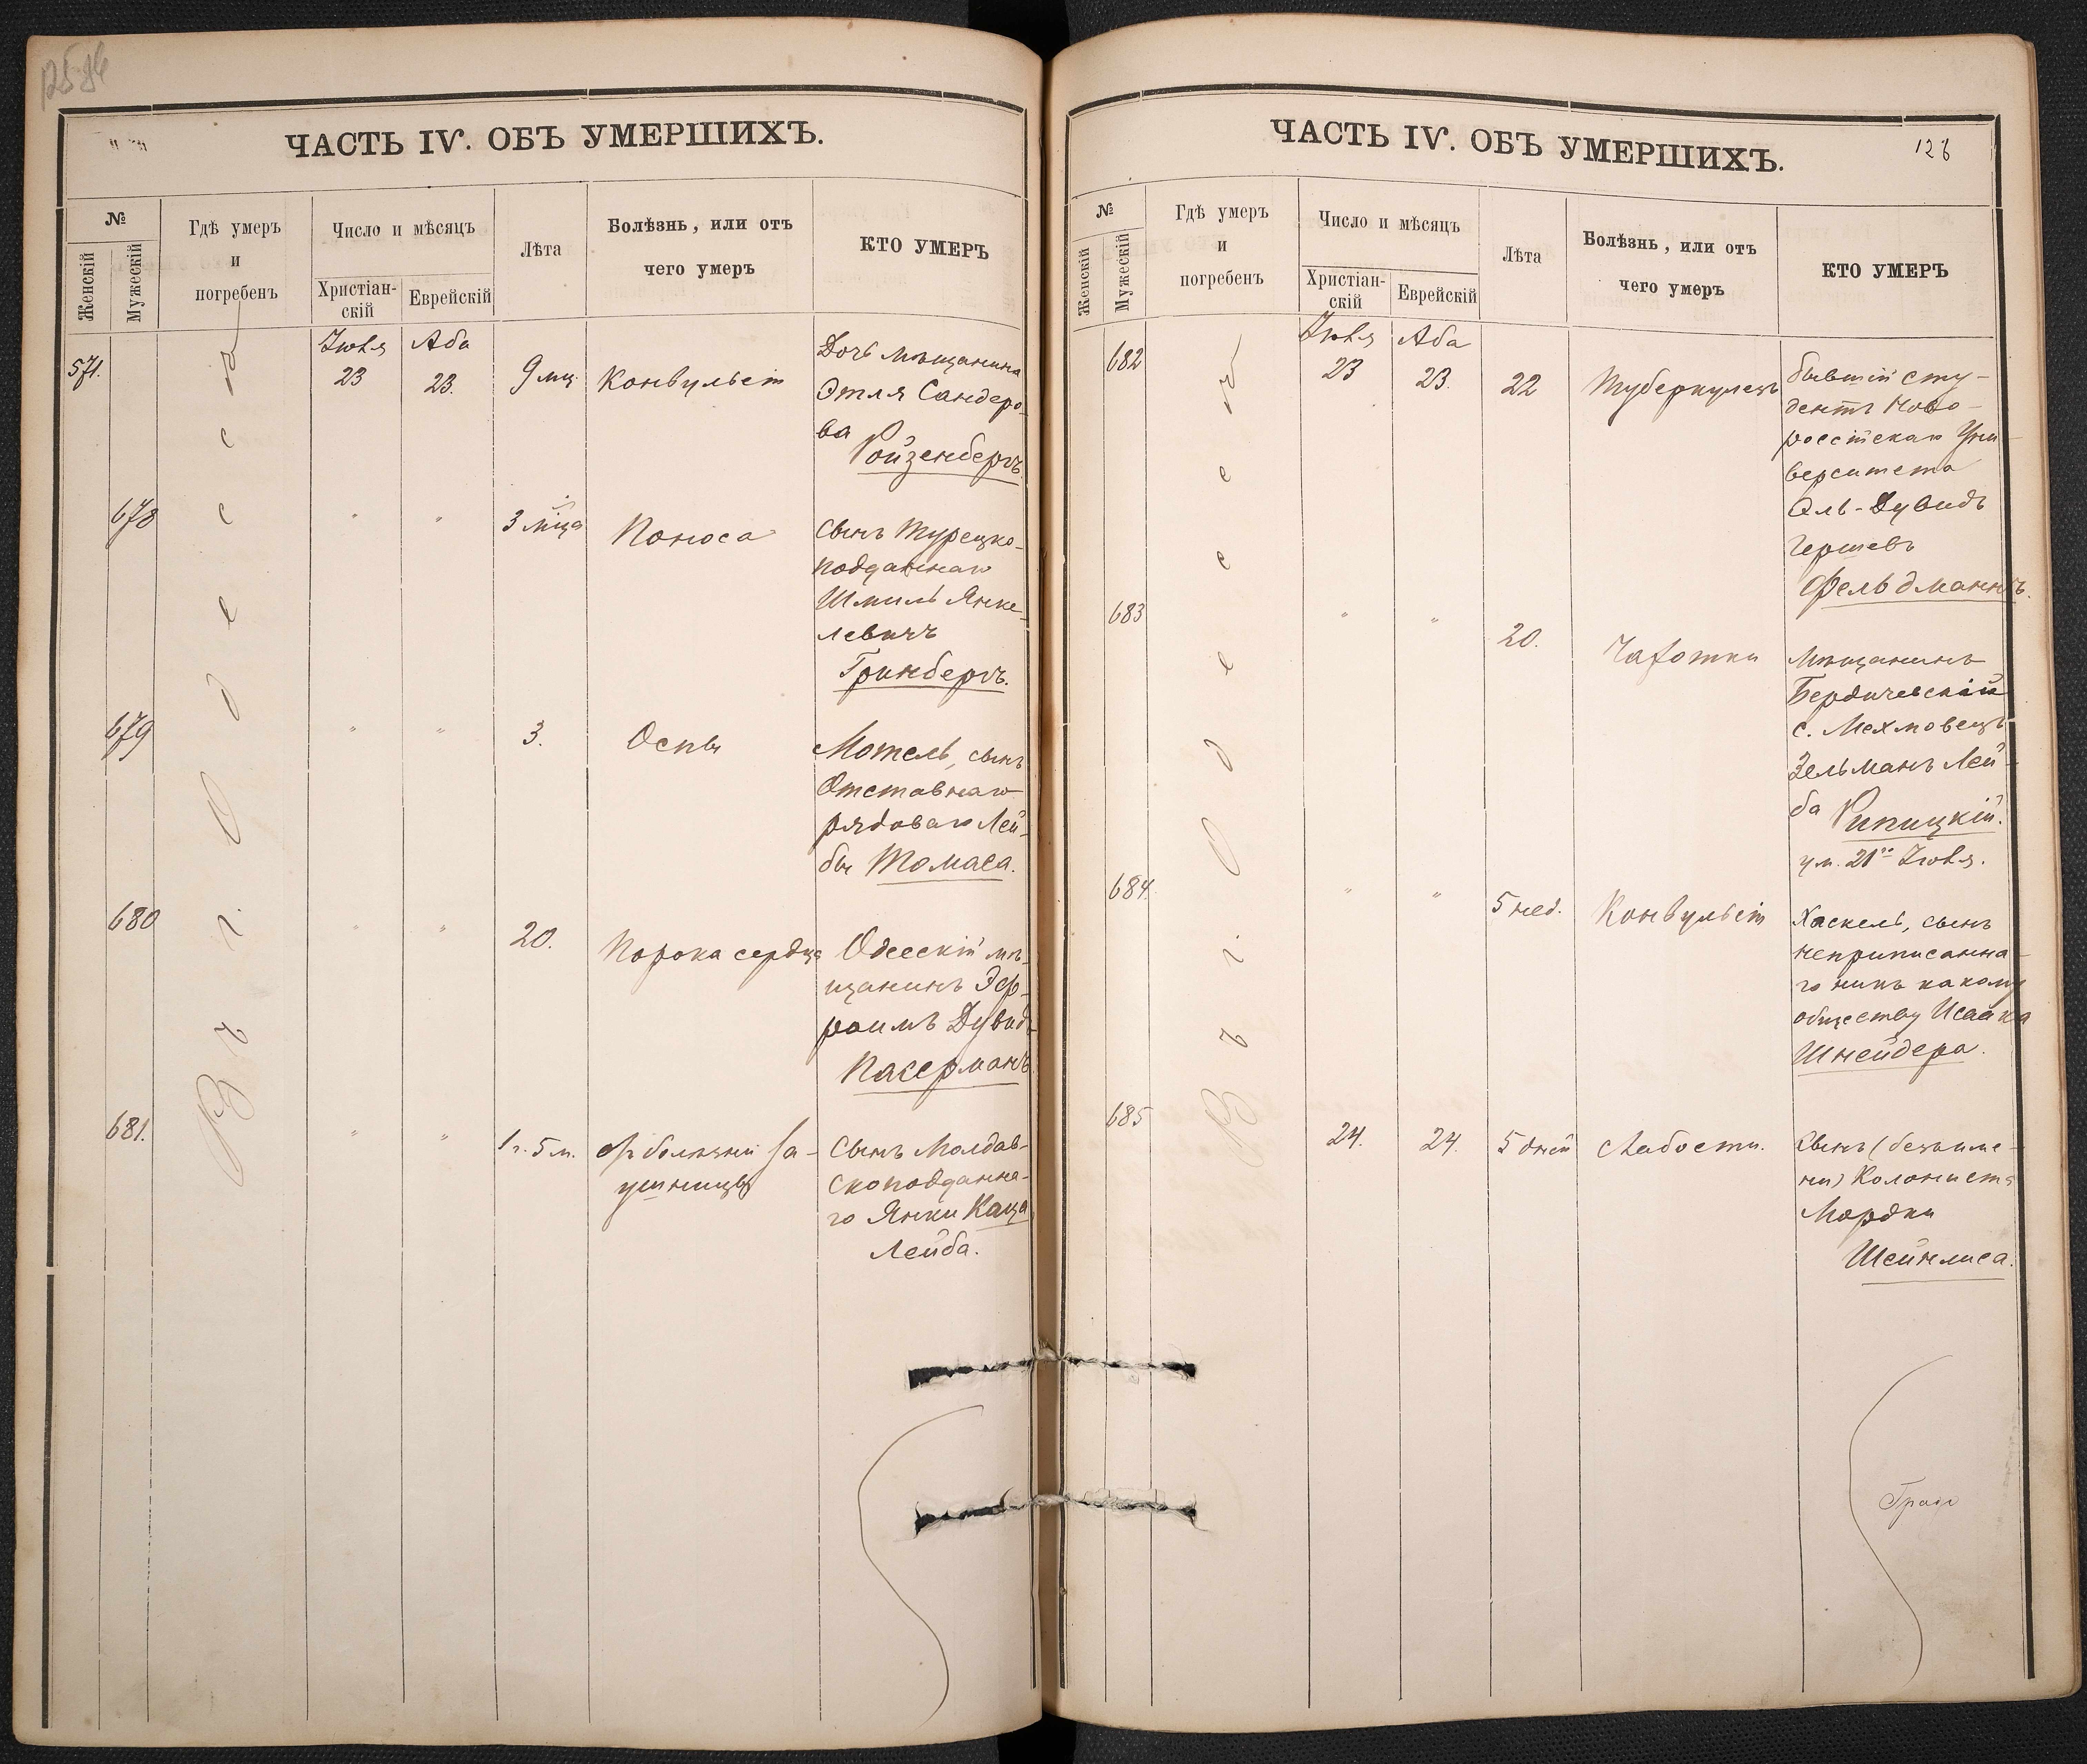 ЧАСТЬ IV. ОБЪ УМЕРШИХЪ.
№
Женскій
Мужескій
Гдѣ умеръ
и
погребенъ
Число и мѣсяцъ
Христіан-
скій
Еврейскій
Лѣта
Болѣзнь, или отъ
чего умеръ
КТО УМЕРЪ
Въ г. Одессѣ
571.
Іюля
23
Аба
23.
9 мц.
Конвульсіи
Дочь мѣщанина
Этля Сандеро-
ва
Ройзенбергъ
678
"
"
3 мѣца
Поноса
Сынъ Турецко-
подданнаго
Шмиль Янке-
левичъ
Гринбергъ.
679
"
"
3.
Оспы
Мотель, сынъ
Отставнаго
рядоваго Лей-
бы Томаса.
680
"
"
20.
Порока сердца
Одесскій мѣ-
щанинъ Эф-
раимъ Дувидъ
Пасерманъ
681.
"
"
1 г. 5 м.
Сынъ Молдав-
скоподданна-
го Янки Каца
Лейба.
ЧАСТЬ IV. ОБЪ УМЕРШИХЪ.
126
№
Женскій
Мужескій
Гдѣ умеръ
и
погребенъ
Число и мѣсяцъ
Христіан-
скій
Еврейскій
Лѣта
Болѣзнь, или отъ
чего умеръ
КТО УМЕРЪ
Въ г. Одессѣ
682
Іюля
23
Аба
23.
22
Туберкулезъ
бывшій сту-
дентъ Ново-
россійскаго Уни-
верситета
Эль-Дувидъ
Гершевъ
Фельдманнъ.
683
"
"
20.
Чахотки
Мѣщанинъ
Бердичевскій
с. Махновецъ
Зельманъ Лей-
ба Рипицкій.
ум. 21го Іюля.
684.
"
"
5 нед.
Конвульсіи
Хаскель, сынъ
неприписанна-
го ни къ какому
обществу Исаака
Шнейдера.
685
24.
24.
5 дней
Слабости.
Сынъ (безъ име-
ни) Колониста
Мордки
Шейнлиса.